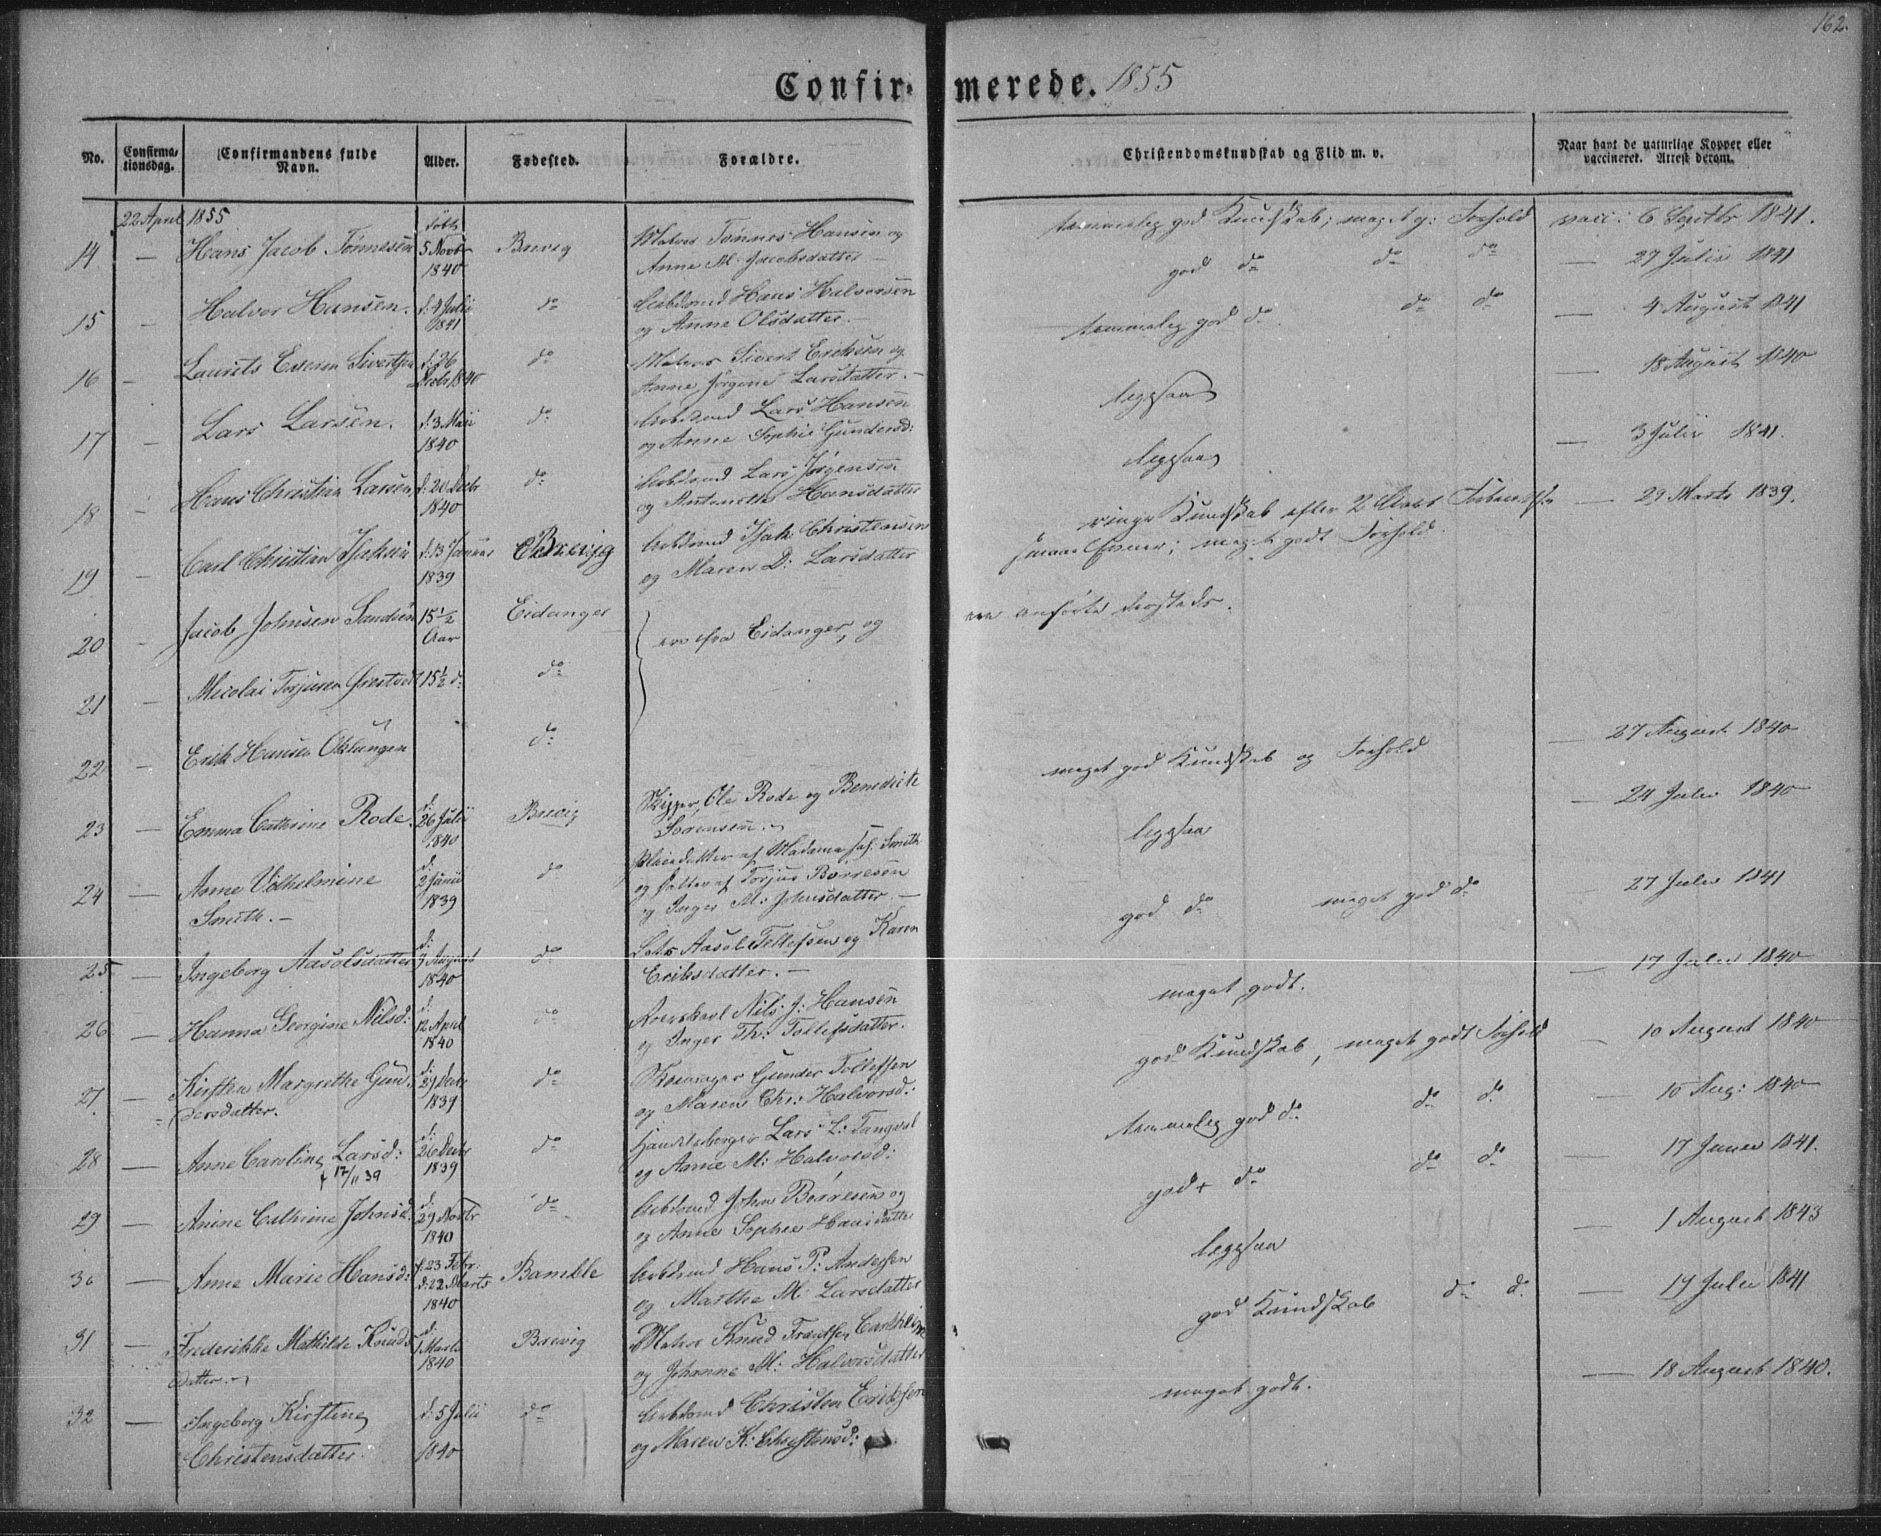 162.
Confirmerede. 1855
No. Confirmationsdag. Confirmandens fulde Navn. Alder. Fødested. Forældre. Christendomskundskab og Flid m. v. Naar havt de naturlige Kopper eller vaccineret. Attest derom.
22 April 1855
14 — Hans Jacob Tønnesen 5 Novbr 1840 Brevig Matros Tønnes Hansen og Anne M: Jacobsdatter — temmelig god Kundskab; meget g: Forhold vacc: 6 Septbr 1841.
15 - Halvor Hansen. d. 4 Julii 1841 do Arbdsmd Hans Halvorsen og Anne Olsdatter. — god do do do — 27 Julii 1841
16 - Laurits Sivertsen d: 26 1840 do Matros Sivert Eriksen og Anne Jørgine Larsdatter. — temmelig god do. do do — 4 August 1841
17 - Lars Larsen. d. 3 Maii 1840 do Arbdsmd Lars Hansen og Anne Sophie Gundersd: ligesaa — 18 August 1840
18 - Hans Christian Larsen d: 20 Decbr 1840 do Arbdsmd Lars Jørgensen og Hansdatter ligesaa — 3 Julii 1841.
19 - Carl Christian Isaksen d. 13 Januar 1839 Brevig Arbdsmd Isak Christensen og Maren D: Larsdatter ringe Kundskab efter 2 Aars smaae Evner; meget godt Forhold — 29 Marts 1839.
20 - Jacob Johnsen 15 1/2 Aar Eidanger ere fra Eidanger, og ere anførte dersteds.
21 — Nicolai Torjusen 15 1/2 d. do
22 — Erik Hansen Oklungen do
23 — Emma Cathrine Rode. d. 26 Julii 1840 Brevig Skipper Ole Rode og Benedicte Sørensen. meget god Kundskab og Forhold — 27 August 1840
24 — Anne Vilhelmine Smith. — d: 2 Junii 1839 do Pleiedatter af Madame Smith og Datter af Torjus Børresen og Inger M: Johnsdatter. — ligesaa — 24 Julii 1840
25 — Ingeborg Aasolsdatter d: August 1840 do Lods Aasol Tellefsen og Karen Eriksdatter. — god do meget god do — 27 Julii 1841
26 — Hanna Georgine Nilsd: d: 12 April 1840 do Nils J: Hansen og Inger Th: Tollefsdatter. meget godt. — 17 Julii 1840
27 — Kirsten Margrethe Gundersdatter. d: 29 1839 do Gunder Tollefsen og Maren Chr: Halvorsd: god Kundskab, meget godt Forhold — 10 August 1840
28 — Anne Caroline Larsd: f 17/11 39 d: 26 Decbr 1839 do Handelsborger Lars L: Tangvol og Anne M: Halvorsd: temmelig god do. do do — 10 Aug: 1840
29 — Anine Cathrine Johnsd. d: 29 Novbr 1840 do Arbdsmd John Børresen og Anne Sophie Hansdatter god do do do — 17 Junii 1841.
30 — Anne Marie Hansd: f. 23 Febr. d: 22 Marts 1840 Bamble Arbdsmd Hans P: Andersen og Marthe M: Larsdatter ligesaa — 1 August 1843
31 — Frederikke Mathilde Knudsdatter. d: 1 Marts 1840 Brevig Matros Knud Frantsen og Johanne M: Halvorsdatter god Kundskab do do. — 19 Julii 1841
32 — Ingeborg Kirstine Christensdatter. d: 5 Julii 1840 do Arbdsmd Christen Eriksen og Maren K: Christensd: meget godt. — 18 August 1840.